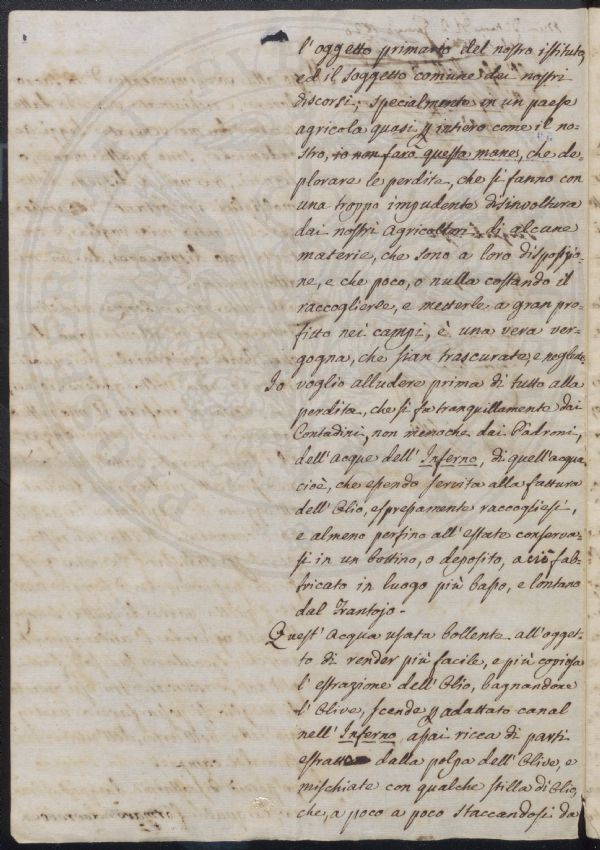 l'oggetto primario del nostro istituto,
ed il soggetto comune dei nostri
discorsi; specialmente in un paese
agricola quasi p intiero come il no=
stro, io non farò questa mane, che de=
plorare le perdite, che si fanno con
una troppo impudente disinvoltura
dai nostri Agricoltori di alcune
materie, che sono a loro disposizio=
ne, e che poco, o nulla costando il
raccoglierle, e metterle a gran pro=
fitto nei campi, è una vera ver=
gogna, che sian trascurate, e neglette
Io voglio alludere prima di tutto alla
perdita, che si fa tranquillamente dai
Contadini, non menoche dai Padroni,
dell'Acque dell'Inferno, di quell'acqua
cioè, che essendo servita alla fattura
dell'Olio, espressamente raccogliesi,
e almeno persino all'estate conserva=
si in un bottino, o deposito, a ciò fab=
bricato in luogo più basso, e lontano
dal Frantojo.
Quest'Acqua usata bollente all'ogget=
to di render più facile, e più copiosa
l'estrazione dell'Olio, bagnandone
l'Olive, scende p adattato canal
nell'Inferno, assai ricca di parti
estratte dalla polpa dell'Olive, e
mischiate con qualche stilla di Olio,
che, a poco a poco staccandosi da